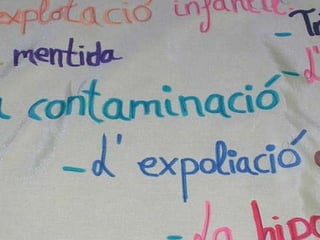 explotació infantil
- Tr
mentida
- d'
contaminació
- d' expoliació
- La hipo